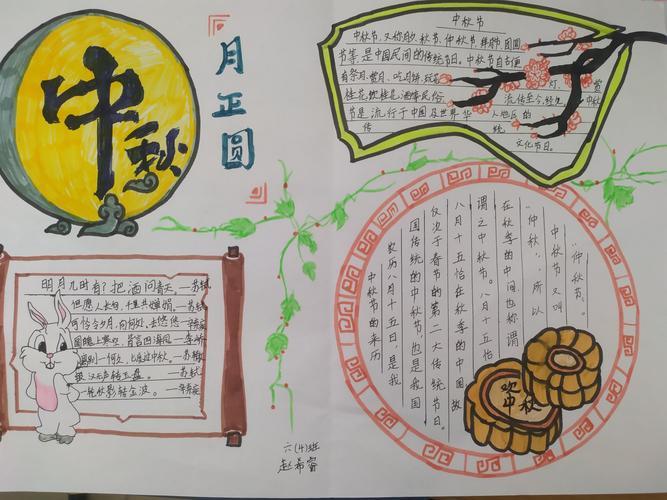 中秋
月正圆
中秋节
中秋节,又称月夕、秋节、仲秋节、拜月节、团圆
节等,是中国民间的传统节日。中秋节自古便
有祭月、赏月、吃月饼、玩花 灯、赏
桂花、饮桂花酒等民俗 流传至今,经久 中秋
节是流行于中国及世界华 人地区的
传 统
文化节日。
明月几时有?把酒问青天。—苏轼
但愿人长久,千里共婵娟。—苏轼
可怜今夕月,向何处、去悠悠—辛弃疾
圆魄上寒空,皆言四海同。—李峤
银汉无声转玉盘。—苏轼
一轮秋影转金波。—辛弃疾
中秋节的来历
农历八月十五日,是我
国传统的中秋节,也是我国
仅次于春节的第二大传统节日。
八月十五恰在秋季的中国故
谓之中秋节。八月十五恰
在秋季的中间也称谓
“仲秋”,所以
中秋节又叫
“仲秋节”。
中秋
六(4)班
赵希睿